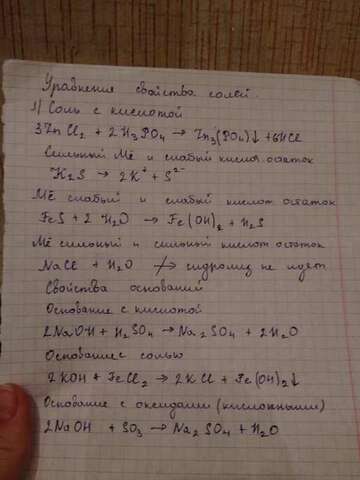 Уравнения свойства солей.
1) Соль с кислотой
3ZnCl₂ + 2H₃PO₄ → Zn₃(PO₄)↓ + 6HCl
Сильный Ме и слабый кислот остаток
K₂S → 2K⁺ + S²⁻
Ме слабый и слабый кислот остаток
FeS + 2 H₂O → Fe(OH)₂ + H₂S
Ме сильный и сильный кислот остаток
NaCl + H₂O ↛ гидролиз не идет
Свойства оснований
Основание с кислотой
2NaOH + H₂SO₄ → Na₂SO₄ + 2H₂O
Основание с солью
2KOH + FeCl₂ → 2KCl + Fe(OH)₂↓
Основание с оксидами (кислотными)
2NaOH + SO₃ → Na₂SO₄ + H₂O